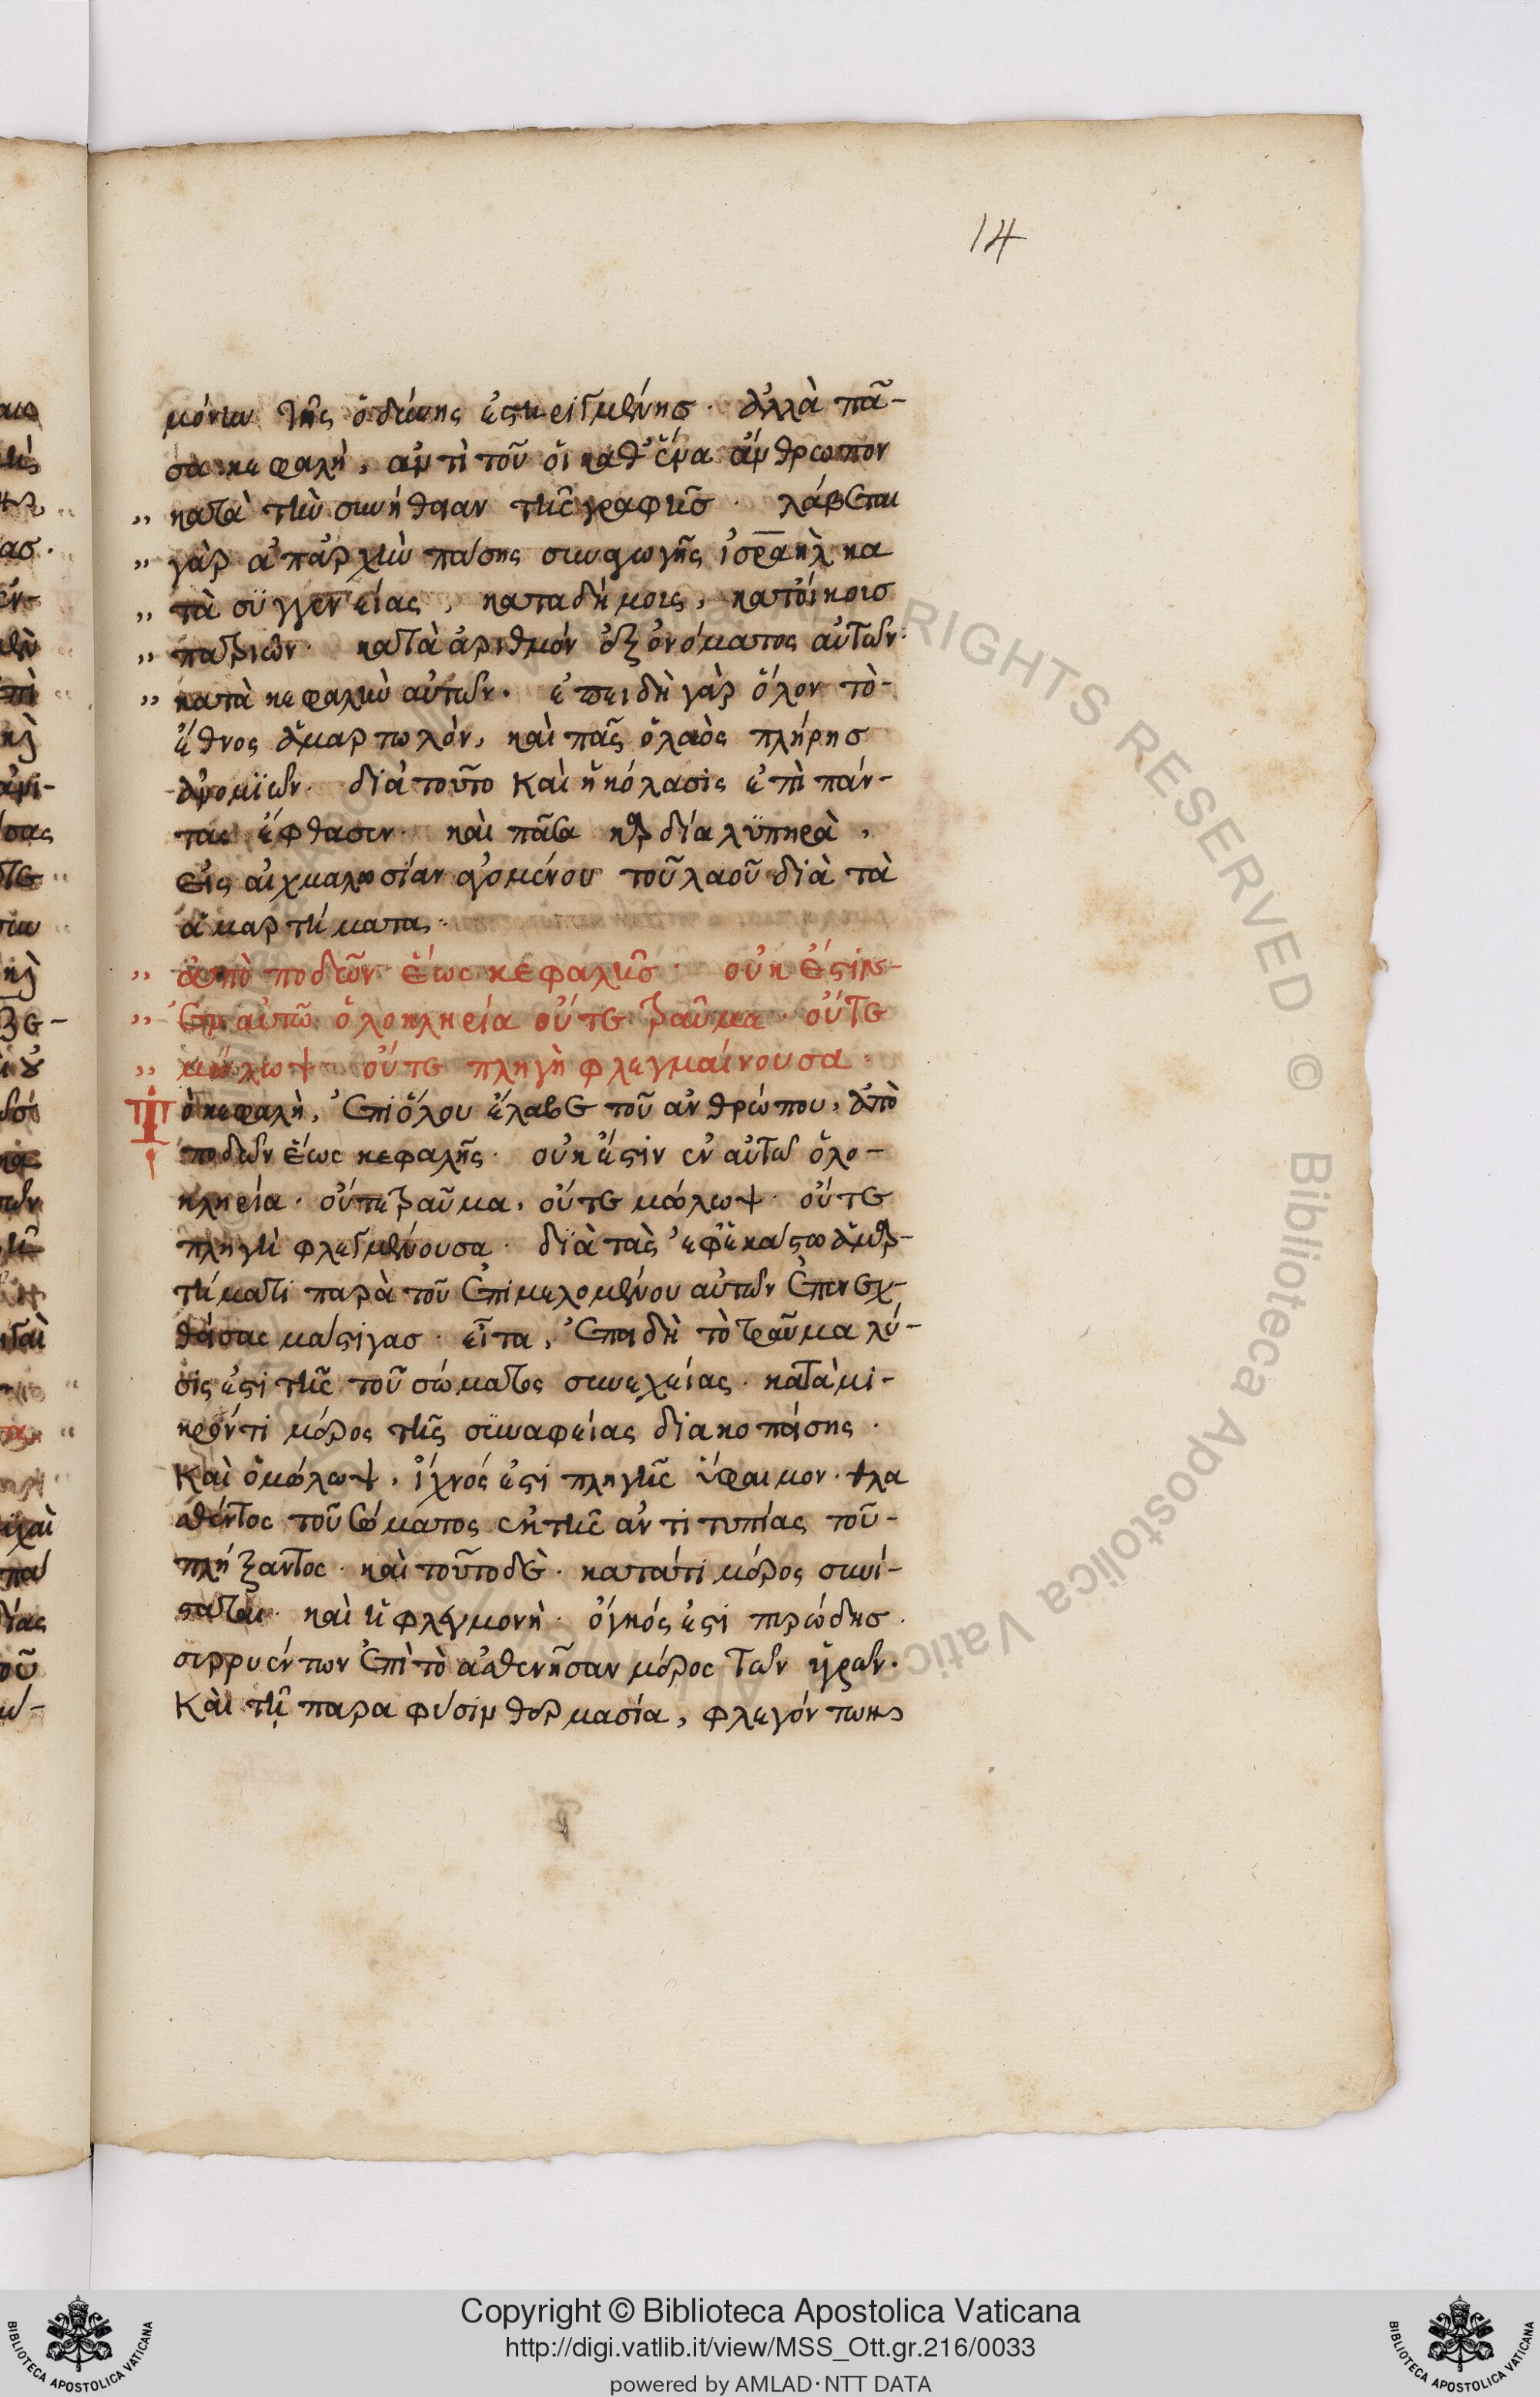 14
μόνην τῆς ὀδύνης ἐστηριγμένης · ἀλλὰ πᾶ-
σα κεφαλὴ, ἀντὶ τοῦ οἱ καθ' ἕνα ἄνθρωπον
κατὰ τὴν συνήθειαν τῆς γραφῆς · λάβεται
γὰρ ἀπαρχὴν πάσης συναγωγῆς ἰσραὴλ κα
τὰ συγγενείας, κατα δήμοις, κατ οἴκοις
πατριῶν · κατὰ ἀριθμόν ἐξ ὀνόματος αὐτῶν·
κατὰ κεφαλὴν αὐτῶν. ἐπειδὴ γὰρ ὅλον τὸ-
ἔθνος ἁμαρτωλὸν, καὶ πᾶς ὁ λαὸς πλήρης
ἀνομιῶν · διὰ τοῦτο καὶ ἡ κόλασις ἐπὶ πάν-
τας ἔφθασεν · καὶ πᾶσα καρδία λυπηρὰ,
εἰς αἰχμαλωσίαν ἀγομένου τοῦ λαοῦ διὰ τὰ
ἁμαρτήματα.
ἀπὸ ποδῶν ἕως κεφαλῆς · οὐκ ἔστιν-
ἐν αὐτῶ ὁλοκληρία οὔτε τραῦμα · οὔτε
μώλωψ οὔτε πληγὴ φλεγμαίνουσα ·
Τὸ κεφαλὴ, ἐπὶ ὅλου ἔλαβε τοῦ ἀνθρώπου, ἀπὸ
ποδῶν ἕως κεφαλῆς · οὐκ ἔστιν ἐν αὐτῶ ὁλο-
κληρία · οὔτε τραῦμα, οὔτε μώλωψ · οὔτε
πληγὴ φλεγμαίνουσα · διὰ τὰς ἐφ' ἑκάστω ἁμαρ-
τήματι παρὰ τοῦ ἐπιμελομένου αὐτῶν ἐπενεχ-
θείσας μάστιγας · εἶτα, ἐπειδὴ τὸ τραῦμα λύ-
σις ἐστὶ τῆς τοῦ σώματος συνεχείας · κατὰ μι-
κρόν τι μέρος τῆς συναφείας διακοπείσης ·
Καὶ ὁ μώλωψ, ἴχνός ἐστι πληγῆς ὕφαιμον · θλα
σθέντος τοῦ σώματος ἐκ τῆς ἀντιτυπίας τοῦ-
πλήξαντος · καὶ τοῦτο δὲ · κατά τι μέρος συνί-
σταται · καὶ ἡ φλεγμονὴ · ὄγκός ἐστι πυρώδης ·
συρρυέντων ἐπὶ τὸ ἀσθενῆσαν μέρος τῶν ὑγρῶν.
Καὶ τῇ παρα φύσιν θερμασία, φλεγόντων
ALL RIGHTS RESERVED © Biblioteca Apostolica Vaticana
BIBLIOTECA APOSTOLICA VATICANA
Copyright © Biblioteca Apostolica Vaticana
http://digi.vatlib.it/view/MSS_Ott.gr.216/0033
powered by AMLAD·NTT DATA
BIBLIOTECA APOSTOLICA VATICANA